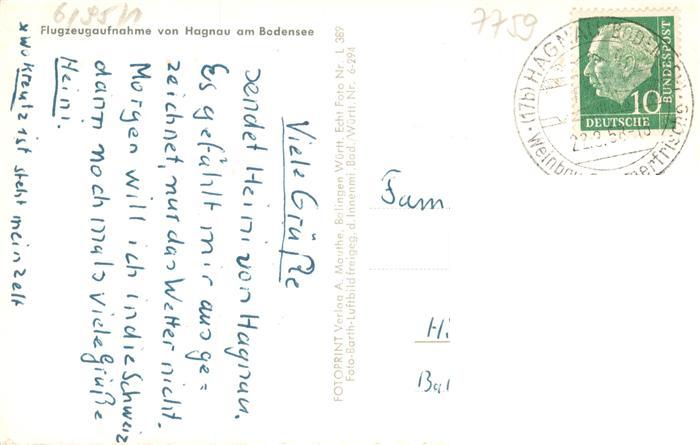 6/95/1
7759
Flugzeugaufnahme von Hagnau am Bodensee
Viele Grüße
sendet Heini von Hagnau.
Es gefählt mir ausge=
zeichnet, nur das Wetter nicht.
Morgen will ich in die Schweiz
dann nochmals viele Grüße
Heini.
x wo Kreutz ist steht mein Zelt
FOTOPRINT Verlag A. Mauthe, Balingen Württ. Echt Foto Nr. L 389
Foto-Barth-Luftbild freigeg. d. Innenmi. Bad.-Württ. Nr. 6-294
Fam
Hi
Bal
(17b) HAGNAU (BODENSEE)
22.8.56
10
DEUTSCHE
BUNDESPOST